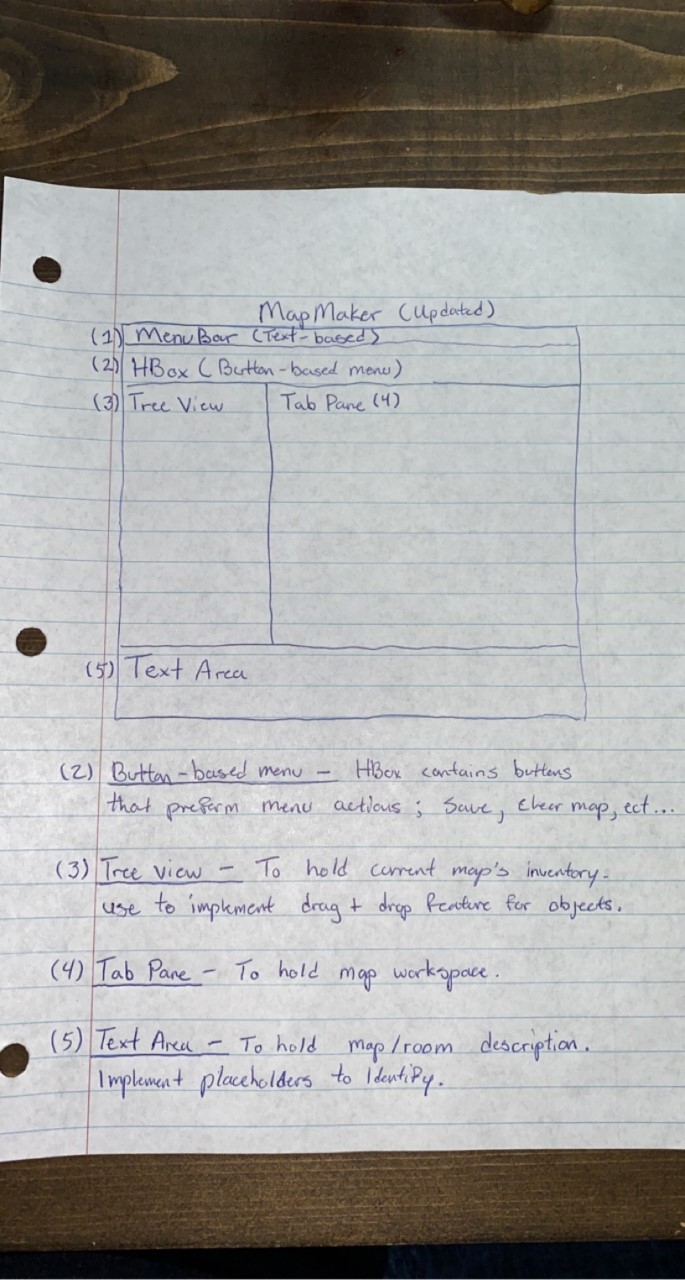 MapMaker (Updated)
(1) Menu Bar (Text-based)
(2) HBox (Button-based menu)
(3) Tree View Tab Pane (4)
(5) Text Area
(2) Button-based menu - HBox contains buttons
that preform menu actions; Save, clear map, ect...
(3) Tree view - To hold current map's inventory.
use to implement drag + drop feature for objects.
(4) Tab Pane - To hold map workspace.
(5) Text Area - To hold map/room description.
Implement placeholders to Identify.